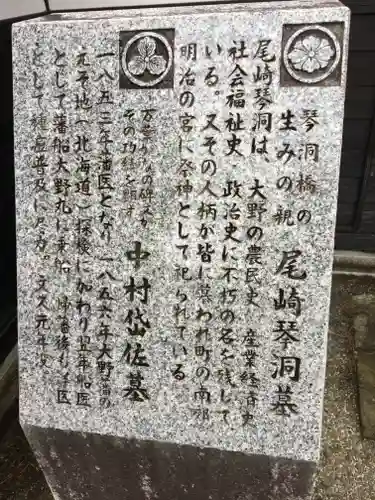 琴洞橋の
生みの親 尾崎琴洞墓
尾崎琴洞は、大野の農民史、産業経済史
社会福祉史、政治史に不朽の名を残して
いる。又その人柄が皆に慕われ町の南部
明治の宮に祭神として祀られている
その功績を顕す
中村岱佐墓
一八五二年藩医となり、一八五六年大野藩の
元そ地(北海道)探検に加わり翌年船医
として藩船大野丸に乗船、帰藩後イ医
として種痘普及に尽力。文久元年没